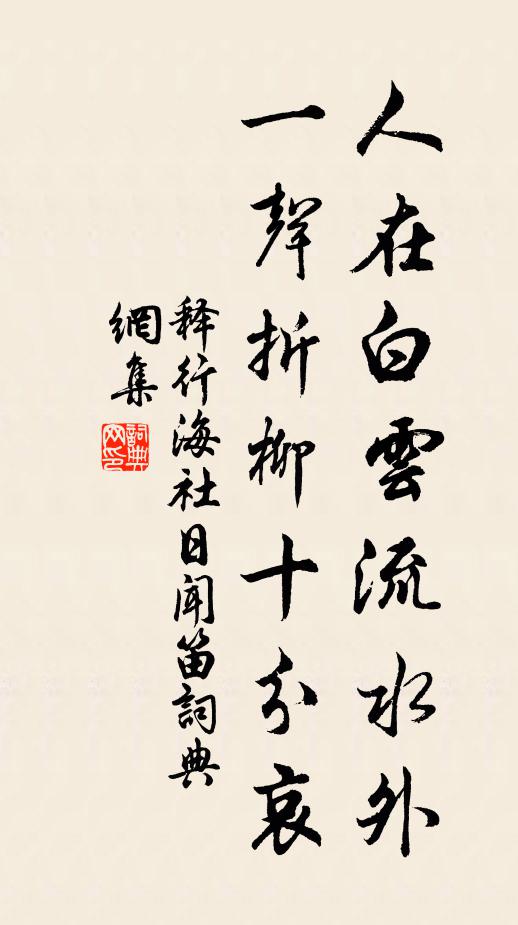 人在白雲流水外
一聲折柳十分哀
释行海社日聞笛詞典
網集
詞典网印